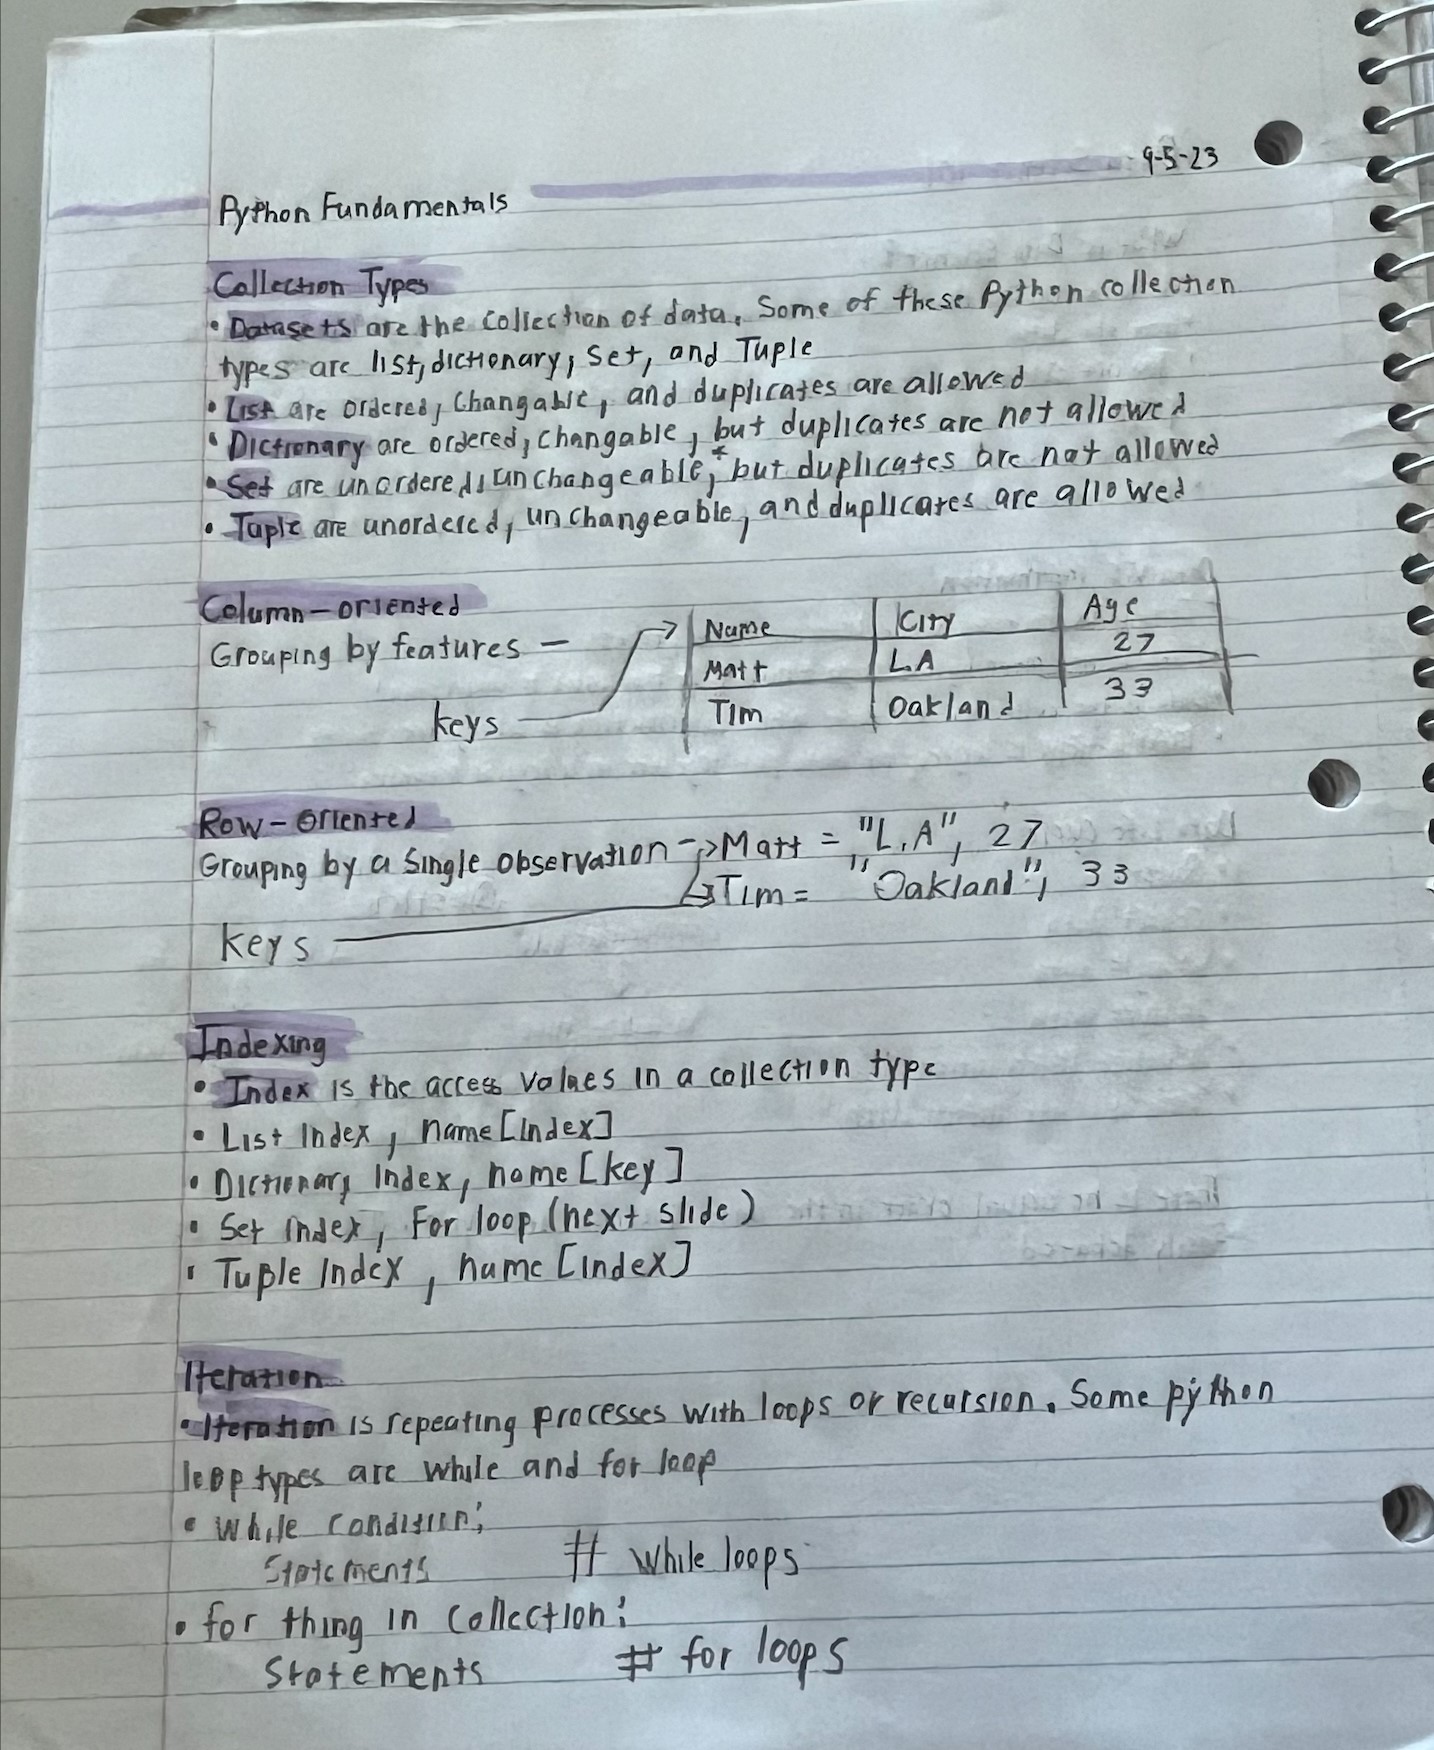 9-5-23
Python Fundamentals
Collection Types
• Datasets are the collection of data. Some of these Python collection
types are list, dictionary, set, and Tuple
• List are ordered, changable, and duplicates are allowed
• Dictionary are ordered, changable, but duplicates are not allowed
• Set are unordered, unchangeable,* but duplicates are not allowed
• Tuple are unordered, unchangeable, and duplicates are allowed
Column-oriented
Grouping by features -
keys
Name City Age
Matt L.A 27
Tim Oakland 33
Row-Oriented
Grouping by a Single observation -> Matt = "L.A", 27
-> Tim = "Oakland", 33
keys
Indexing
• Index is the access values in a collection type
• List Index, name[index]
• Dictionary Index, name [key]
• Set index, For loop (next slide)
• Tuple Index, name [index]
Iteration
• Iteration is repeating processes with loops or recursion. Some python
loop types are while and for loop
• While condition:
Statements # While loops
• for thing in collection:
Statements # for loops